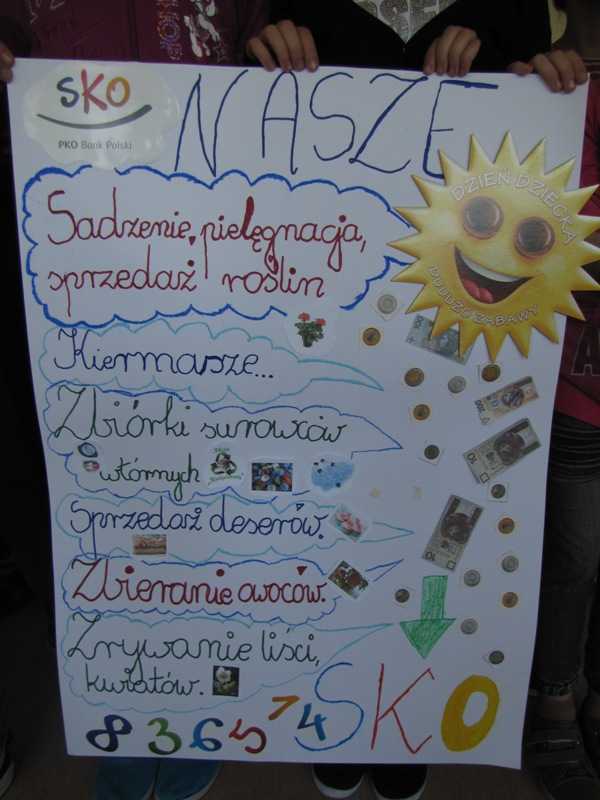 SKO
PKO Bank Polski
NASZE
DZIEŃ DZIECKA
Sadzenie, pielęgnacja,
sprzedaż roślin
Kiermasze...
Zbiórki surowców
wtórnych
Sprzedaż deserów.
Zbieranie owoców.
Zrywanie liści,
kwiatów.
8 3 6 5 7 4
SKO